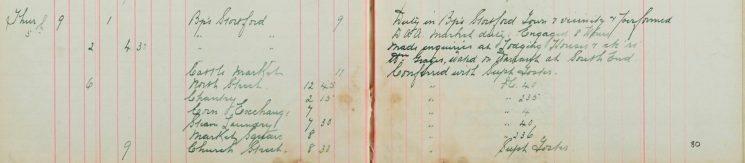 Thurs. 9 1 Bps Stortford 9 Duty in Bps Stortford Town & vicinity & performed
5 " " D.A.A. Market duty. Engaged &
2 4 30 " " made enquiries at Lodging Houses &
wand on at South End.
Cattle Market 11 Conferred with Supt Foster.
6 North Street. 12 45 " P.C. 40
Chantry 2 15 " " 235
Corn Exchange 7 " " 4
Steam Laundry 7 30 " " 40
Market Square 8 " " 236
9 Church Street. 8 30 " Supt Foster 80